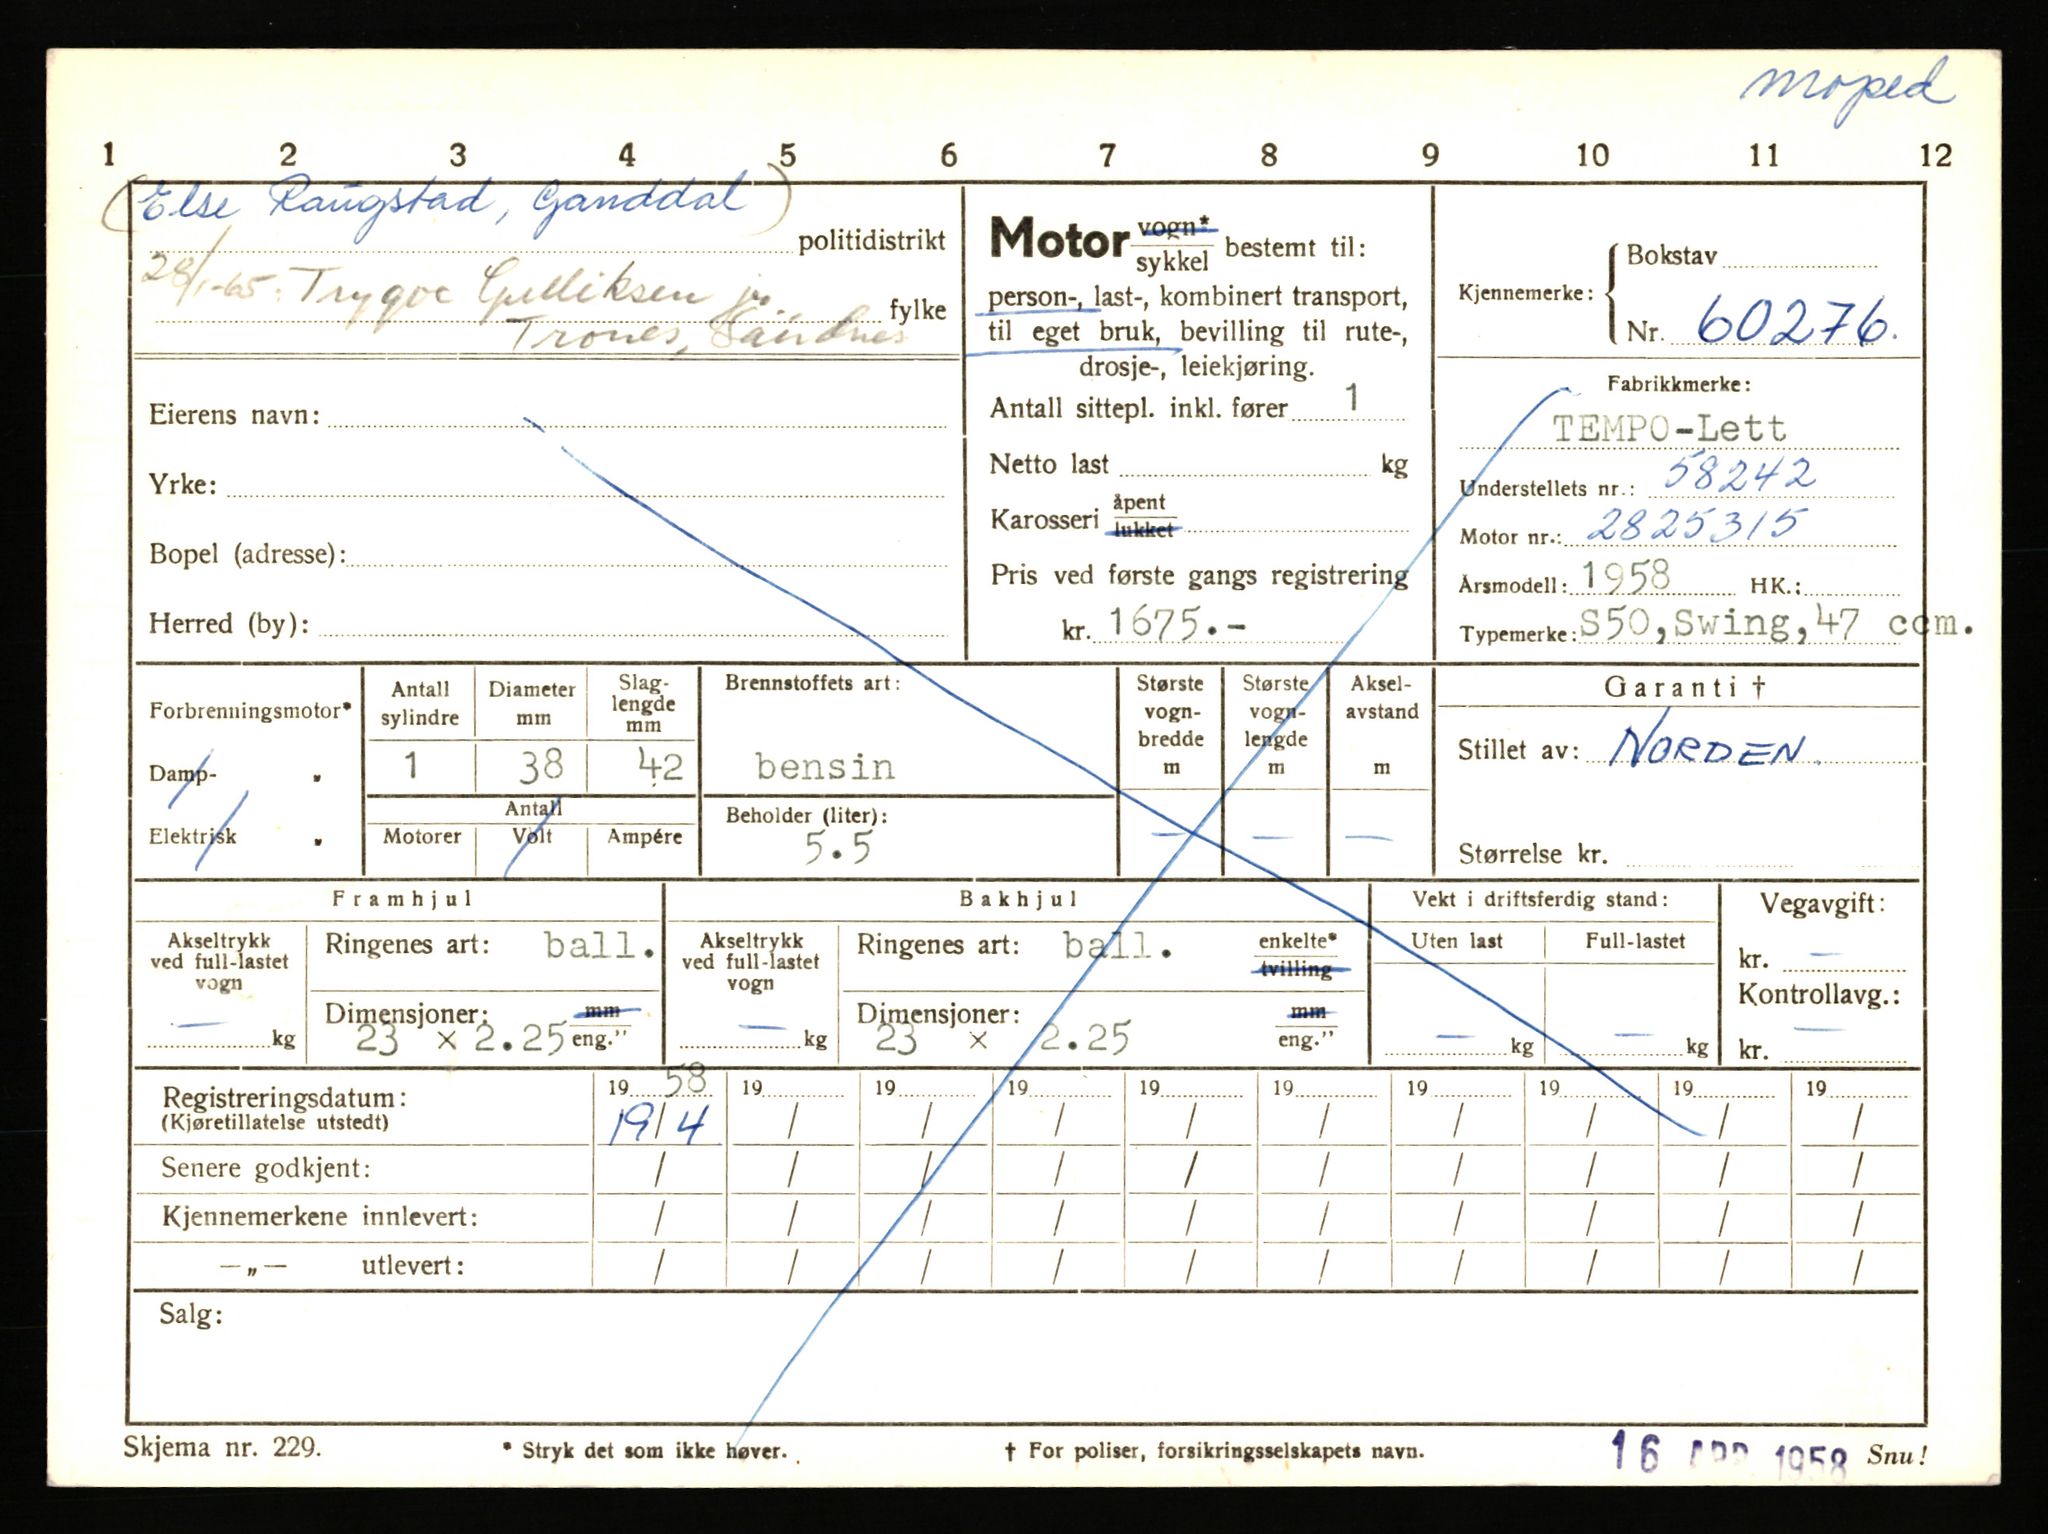 moped
1 2 3 4 5 6 7 8 9 10 11 12
(Else Raugstad, Ganddal)
politidistrikt
28/1-65. Trygve Gulliksen jr.
fylke
Trones, Sandnes
Eierens navn:
Yrke:
Bopel (adresse):
Herred (by):
Motor vogn* / sykkel bestemt til:
person-, last-, kombinert transport,
til eget bruk, bevilling til rute-,
drosje-, leiekjøring.
Antall sittepl. inkl. fører 1
Netto last kg
Karosseri åpent / lukket
Pris ved første gangs registrering
kr. 1675.-
Kjennemerke: Bokstav
Nr. 60276.
Fabrikkmerke:
TEMPO-Lett
Understellets nr.: 58242
Motor nr.: 2825315
Årsmodell: 1958 HK.:
Typemerke: S50, Swing, 47 ccm.
Forbrenningsmotor*
Damp- „
Elektrisk „
Antall sylindre
1
Diameter mm
38
Slag-lengde mm
42
Antall
Motorer Volt Ampére
Brennstoffets art:
bensin
Beholder (liter):
5.5
Største vogn-bredde m
—
Største vogn-lengde m
—
Aksel-avstand m
—
Garanti †
Stillet av: NORDEN.
Størrelse kr.
Framhjul
Akseltrykk ved full-lastet vogn
— kg
Ringenes art: ball.
Dimensjoner: mm
23 × 2.25 eng.”
Bakhjul
Akseltrykk ved full-lastet vogn
— kg
Ringenes art: ball. enkelte* tvilling
Dimensjoner: mm
23 × 2.25 eng.”
Vekt i driftsferdig stand:
Uten last Full-lastet
— kg — kg
Vegavgift:
kr. —
Kontrollavg.:
kr. —
Registreringsdatum: 19 58 19 19 19 19 19 19 19 19 19
(Kjøretillatelse utstedt) 19/4 / / / / / / / / /
Senere godkjent: / / / / / / / / / /
Kjennemerkene innlevert: / / / / / / / / / /
—„— utlevert: / / / / / / / / / /
Salg:
Skjema nr. 229. * Stryk det som ikke høver. † For poliser, forsikringsselskapets navn. 16 APR 1958 Snu!